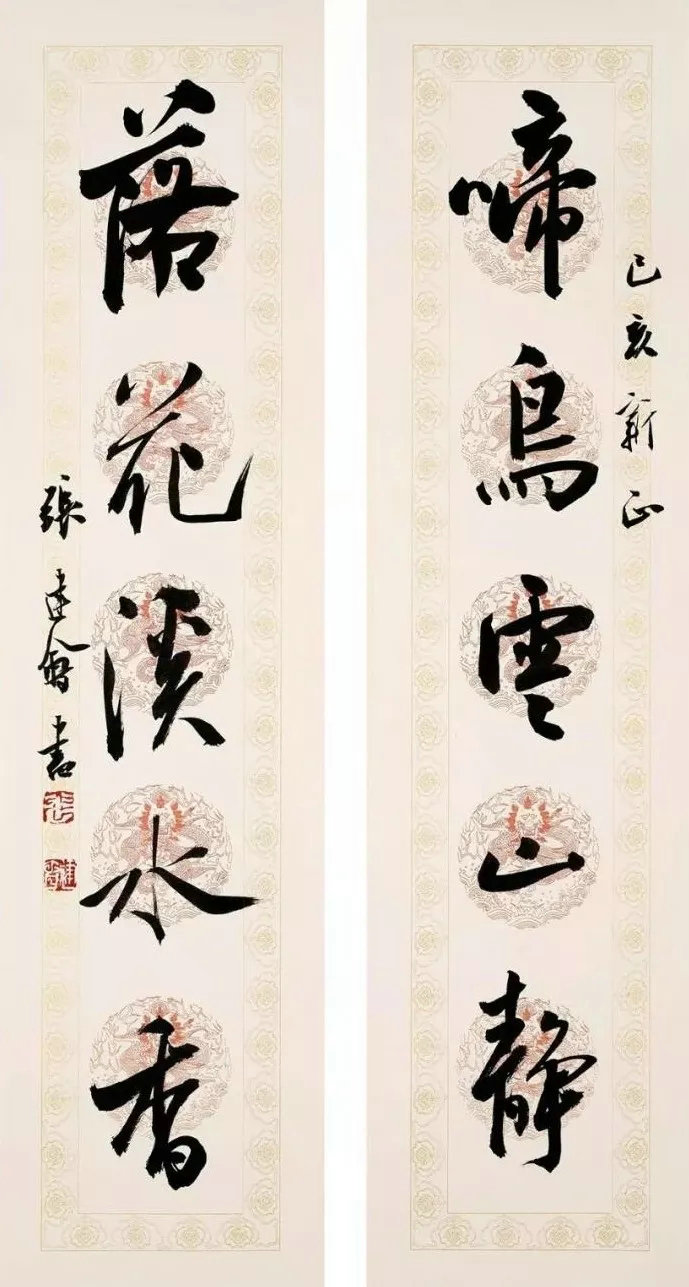 己亥新正
啼鳥雲山靜
落花溪水香
張建會書